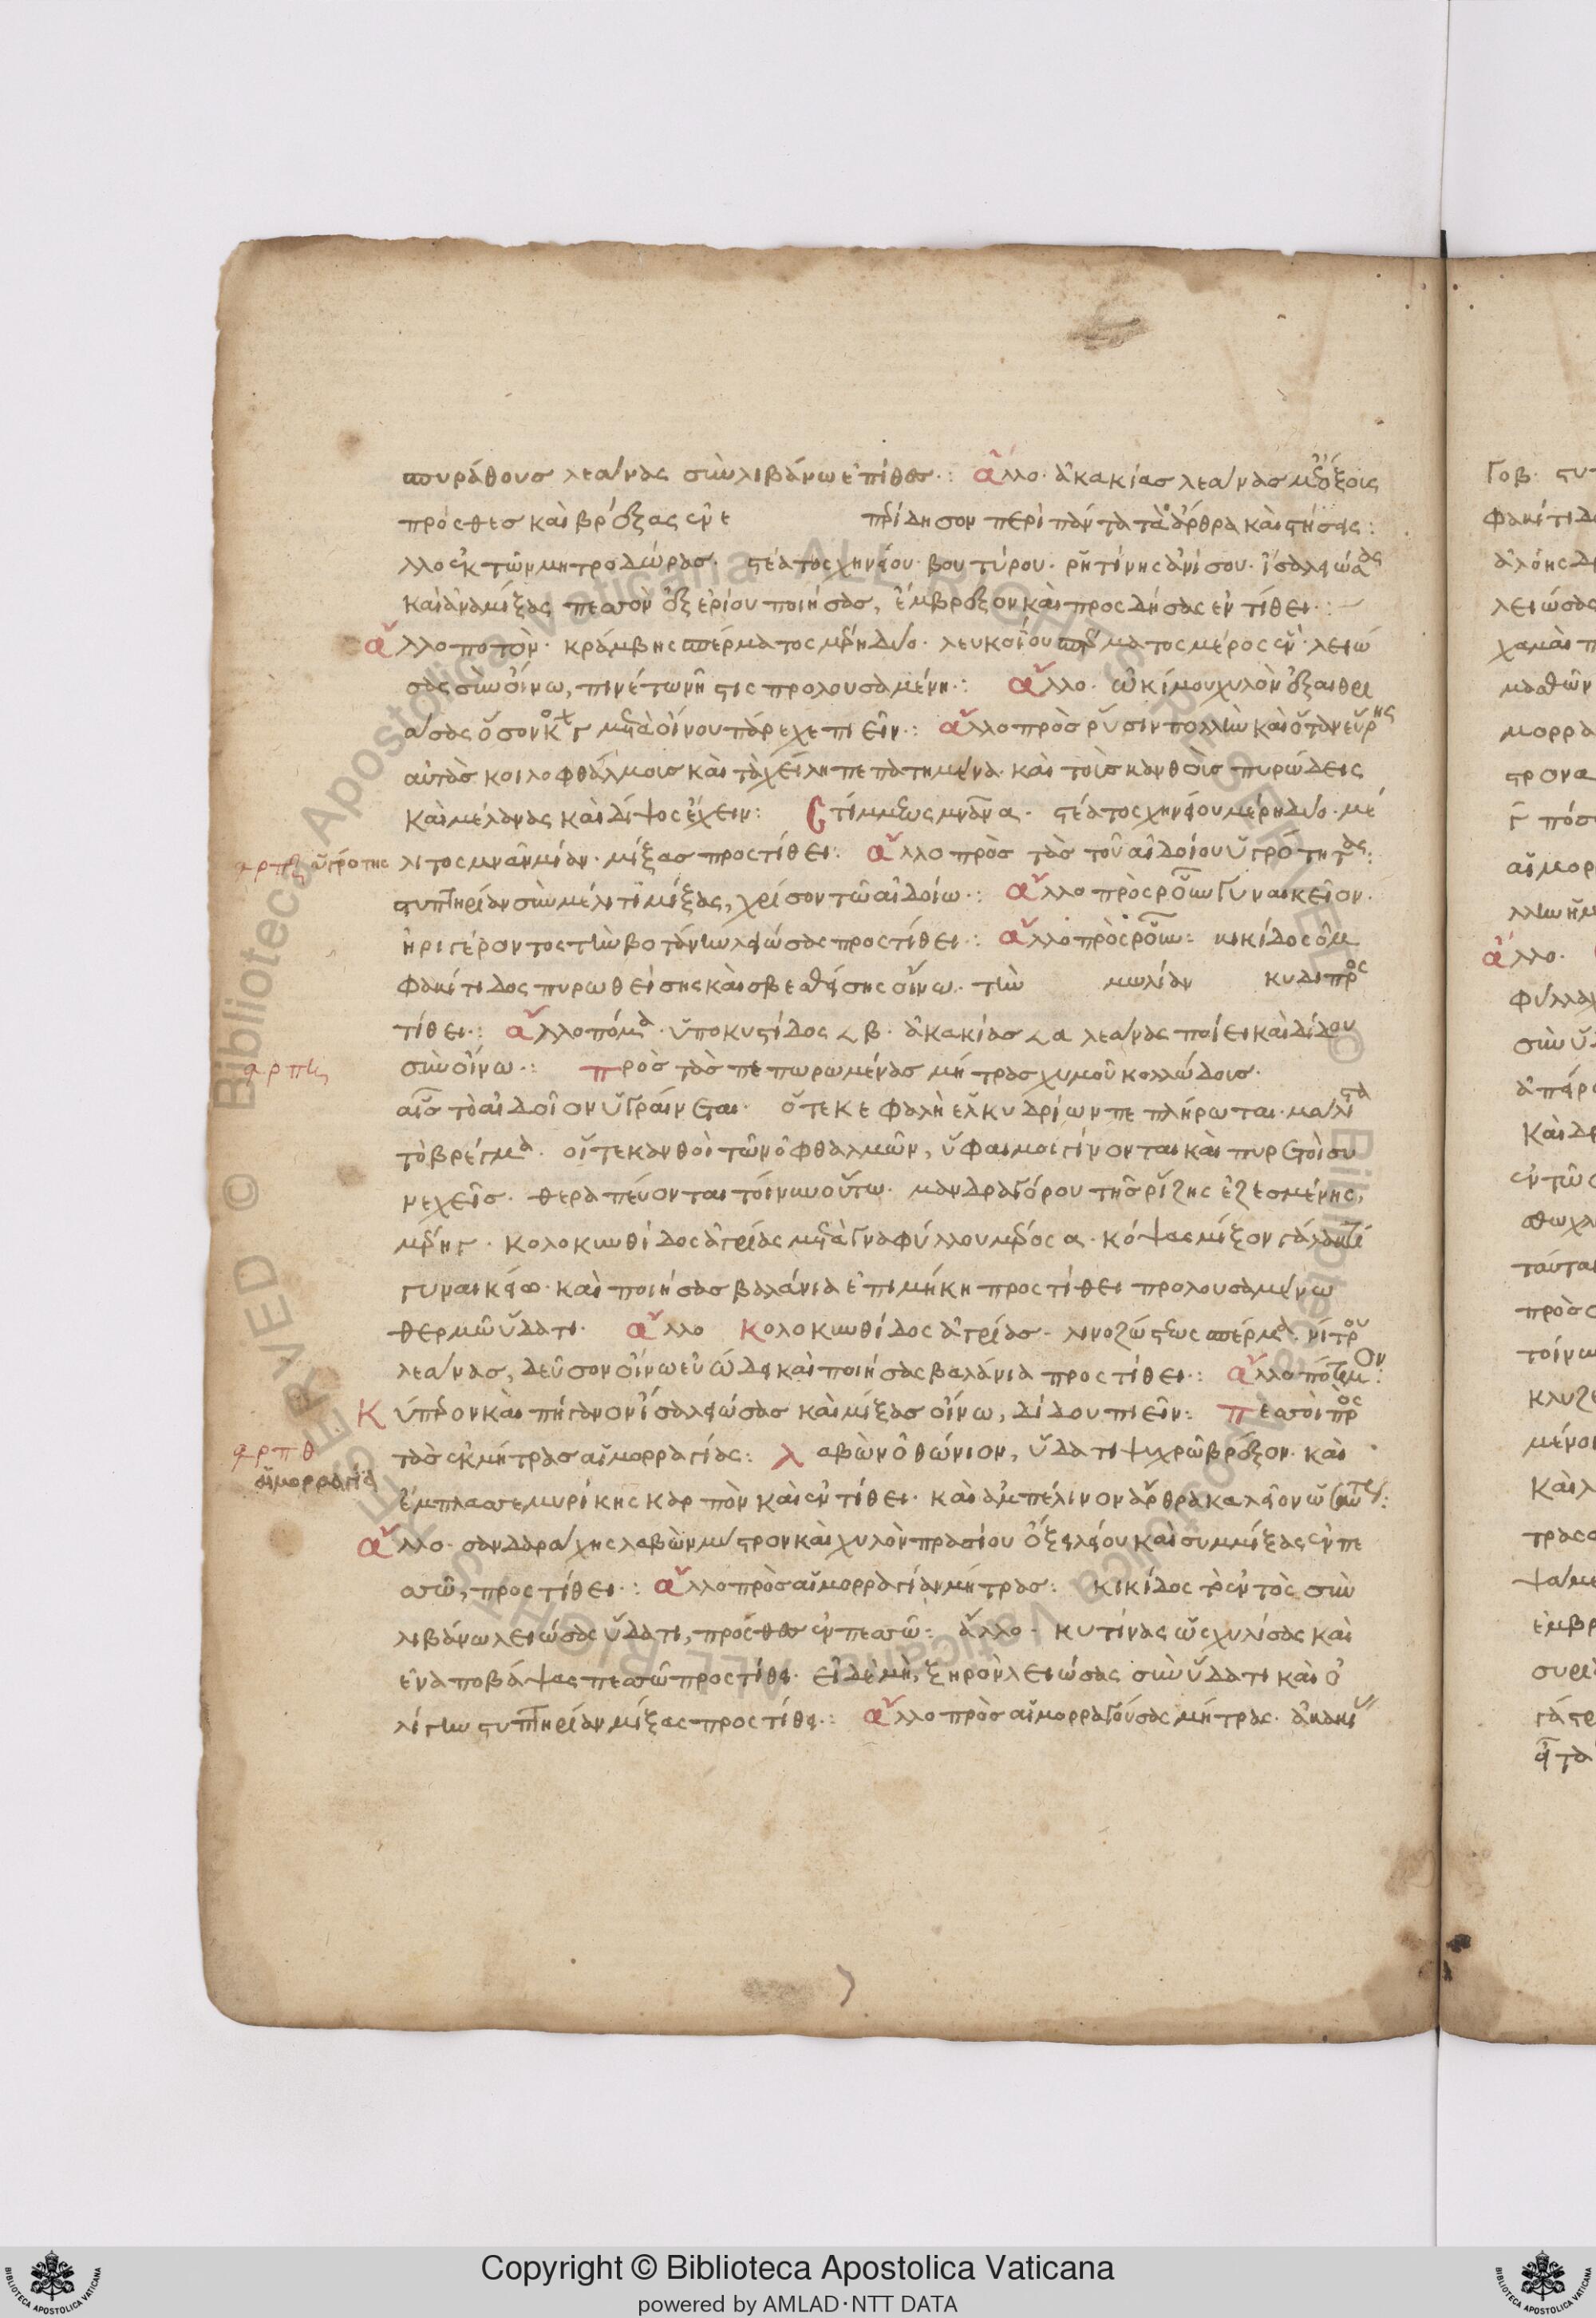 σπυράθους λεάνας σὺν λιβάνω ἐπίθες·: ἄλλο· ἀκακίας λεάνας μετ' ὄξους
πρόσθες καὶ βρέξας ἐν ε περίδησον περὶ πάντα τὰ ἄρθρα καὶ στήσεις:
λλο ἐκ τῶν μητροδώρας· στέατος χηνείου· βουτύρου· ῥητίνης ἀνίσου· ἴσα λειώσας
καὶ ἀναμίξας πεσσὸν ἐξ ἐρίου ποιήσας, ἔμβρεξον καὶ προσδήσας ἐντίθει·:
ἄλλο ποτὸν· κράμβης σπέρματος μέρη δύο· λευκοΐου σπέρματος μέρος ἕν· λειώ
σας σὺν οἴνω, πινέτω νῆστις προλουσαμένη·: ἄλλο· ὠκίμου χυλὸν ἐξαιθρι
άσας ὅσον κο γ μετὰ οἴνου πάρεχε πιεῖν·: ἄλλο πρὸς ῥύσιν πολλὴν καὶ ὅταν εὕρης
αὐτὰς κοιλοφθάλμοις καὶ τὰ χείλη πεπατημένα· καὶ τοῖς κανθοῖς πυρώδεις
καὶ μέλανας καὶ δίψος ἔχειν: Στίμμεως μνᾶν α· στέατος χηνείου μέρη δύο· μέ
λιτος μνᾶν μίαν· μίξας προστίθει: ἄλλο πρὸς τὰς τοῦ αἰδοίου ὑγρότητας:
στυπτηρίαν σὺν μέλιτι μίξας, χρίσον τῶ αἰδοίω·: ἄλλο πρὸς ῥοῦν γυναικεῖον·
ἠριγέροντος τὴν βοτάνην λειώσας προστίθει·: ἄλλο πρὸς ῥοῦν: κικίδος ὀμ
φακίτιδος πυρωθείσης καὶ σβεσθείσης οἴνω· τὴν μωλίαν κυδι πρὸς
τίθει·: ἄλλο πόμα· ὑποκυστίδος 𐅻 β· ἀκακίας 𐅻 α λεάνας ποίει καὶ δίδου
σὺν οἴνω·: πρὸς τὰς πεπωρωμένας μήτρας χυμοῦ κολλώδους·
αἷς τὸ αἰδοῖον ὑγραίνεται· ὅτε κεφαλὴ ἑλκυδρίων πεπλήρωται· μάλιστα
τὸ βρέγμα· οἵ τε κανθοὶ τῶν ὀφθαλμῶν, ὕφαιμοι γίνονται καὶ πυρετοὶ συ
νεχεῖς· θεραπεύονται τοίνυν οὕτω· μανδραγόρου τῆς ῥίζης ἐζεσμένης,
μέρη γ· κολοκυνθίδος ἀγρίας μετὰ γναφύλλου μέρος α· κόψας μίξον γάλακτι
γυναικείω· καὶ ποιήσας βαλάνια ἐπιμήκη προστίθει προλουσαμένω
θερμῶ ὕδατι· ἄλλο Κολοκυνθίδος ἀγρίας· λινοζώστεως σπέρμα· νίτρου
λεάνας, δεῦσον οἴνω εὐώδει καὶ ποιήσας βαλάνια προστίθει·: ἄλλο πότιμον:
Κύπερον καὶ πήγανον ἴσα λειώσας καὶ μίξας οἴνω, δίδου πιεῖν: πεσσοὶ πρὸς
τὰς ἐκ μήτρας αἱμορραγίας: λαβὼν ὀθώνιον, ὕδατι ψυχρῶ βρέξον· καὶ
ἔμπλασσε μυρίκης καρπὸν καὶ ἐντίθει· καὶ ἀμπέλινον
ἄλλο· σανδαράχης λαβὼν μέτρον καὶ χυλὸν πρασίου ἐξ ἐλαίου καὶ συμμίξας ἐν πε
σσῶ, προστίθει·: ἄλλο πρὸς αἱμορραγίαν μήτρας: κικίδος τὸ ἐντὸς σὺν
λιβάνω λειώσας ὕδατι, πρόσθες ἐν πεσσῶ: ἄλλο· κυτίνας ὡς χυλίσας καὶ
ἐναποβάψας πεσσῶ προστίθει· εἰ δὲ μὴ, ξηρὸν λειώσας σὺν ὕδατι καὶ ὀ
λίγην στυπτηρίαν μίξας προστίθει·: ἄλλο πρὸς αἱμορραγούσας μήτρας·
ὑγρότης
αἱμορραγία
ρπθ
Copyright © Biblioteca Apostolica Vaticana
powered by AMLAD·NTT DATA